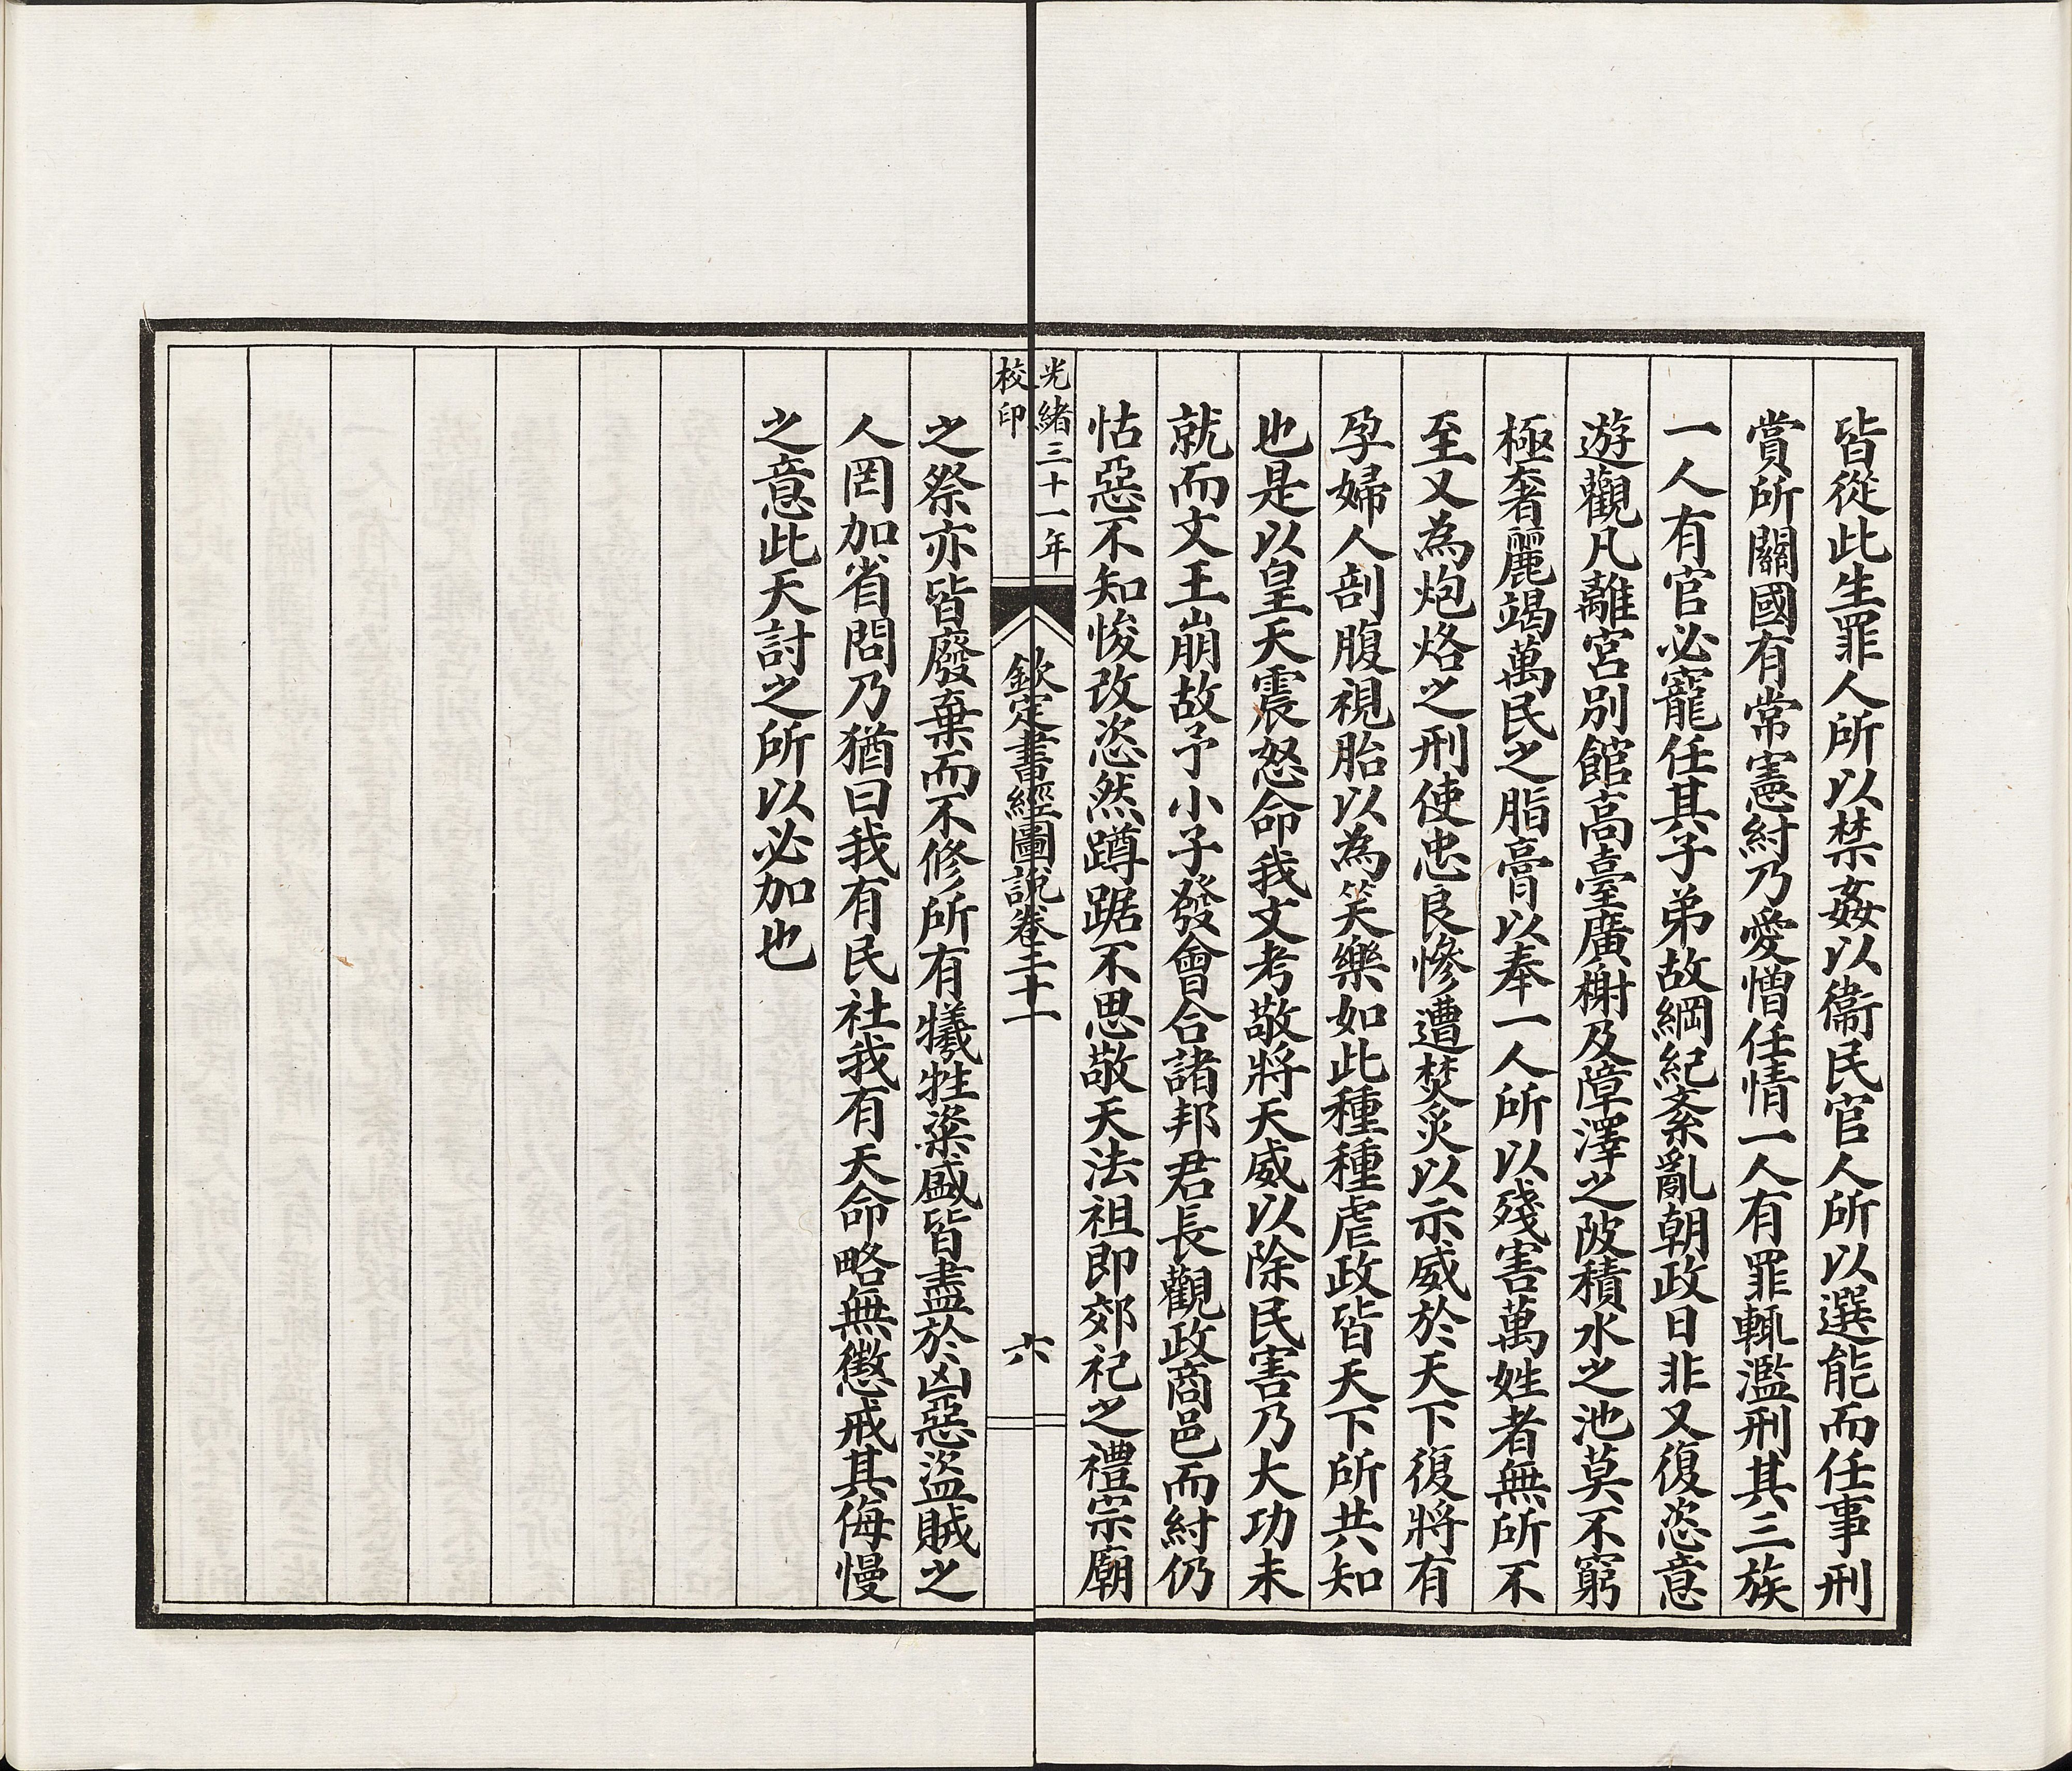 皆從此生罪人所以禁姦以衞民官人所以選能而任事刑
賞所關國有常憲紂乃愛憎任情一人有罪輒濫刑其三族
一人有官必寵任其子弟故綱紀紊亂朝政日非又復恣意
遊觀凡離宮別館高臺廣榭及障澤之陂積水之池莫不窮
極奢麗竭萬民之脂膏以奉一人所以殘害萬姓者無所不
至又為炮烙之刑使忠良慘遭焚炙以示威於天下復將有
孕婦人剖腹視胎以為笑樂如此種種虐政皆天下所共知
也是以皇天震怒命我文考敬將天威以除民害乃大功未
就而文王崩故予小子發會合諸邦君長觀政商邑而紂仍
怙惡不知悛改恣然蹲踞不思敬天法祖即郊祀之禮宗廟
光緒三十一年
校印
欽定書經圖說卷二十一
六
之祭亦皆廢棄而不修所有犧牲粢盛皆盡於凶惡盜賊之
人罔加省問乃猶曰我有民社我有天命略無懲戒其侮慢
之意此天討之所以必加也